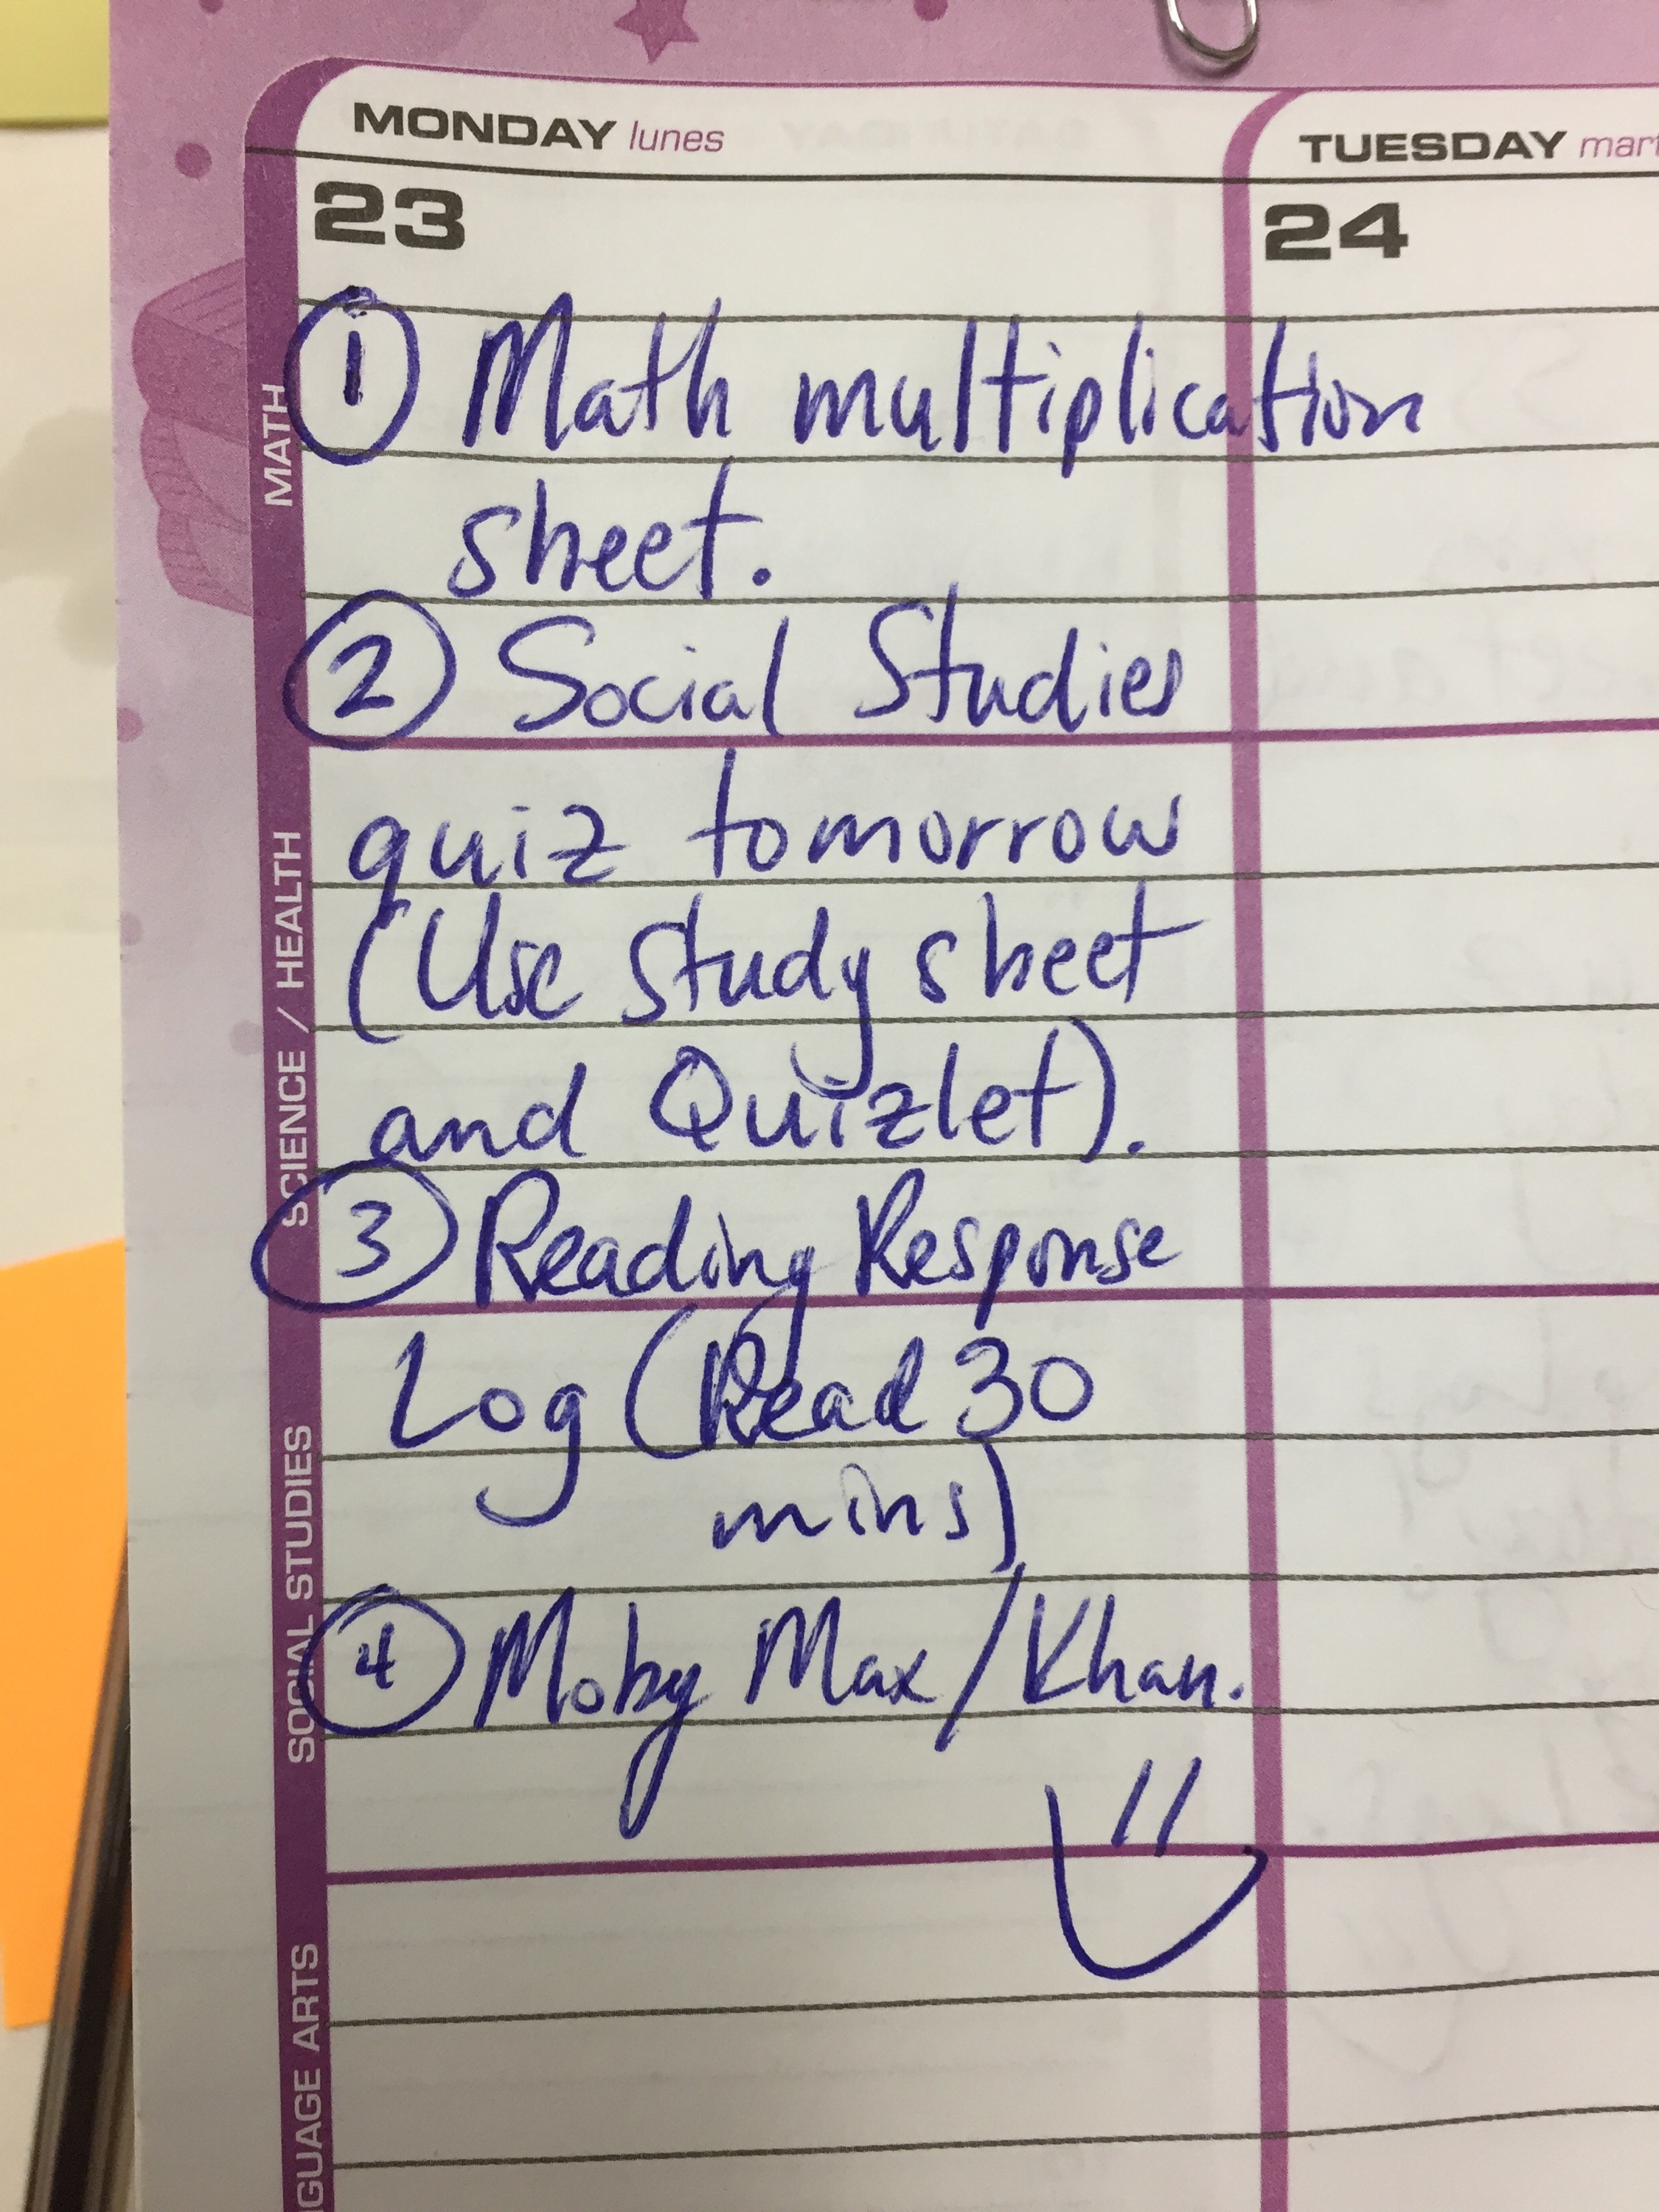 MONDAY lunes
TUESDAY mart
23
24
MATH
① Math multiplication
sheet.
② Social Studies
SCIENCE / HEALTH
quiz tomorrow
(Use study sheet
and Quizlet).
③ Reading Response
SOCIAL STUDIES
Log (Read 30
mins)
④ Moby Max/Khan.
GUAGE ARTS